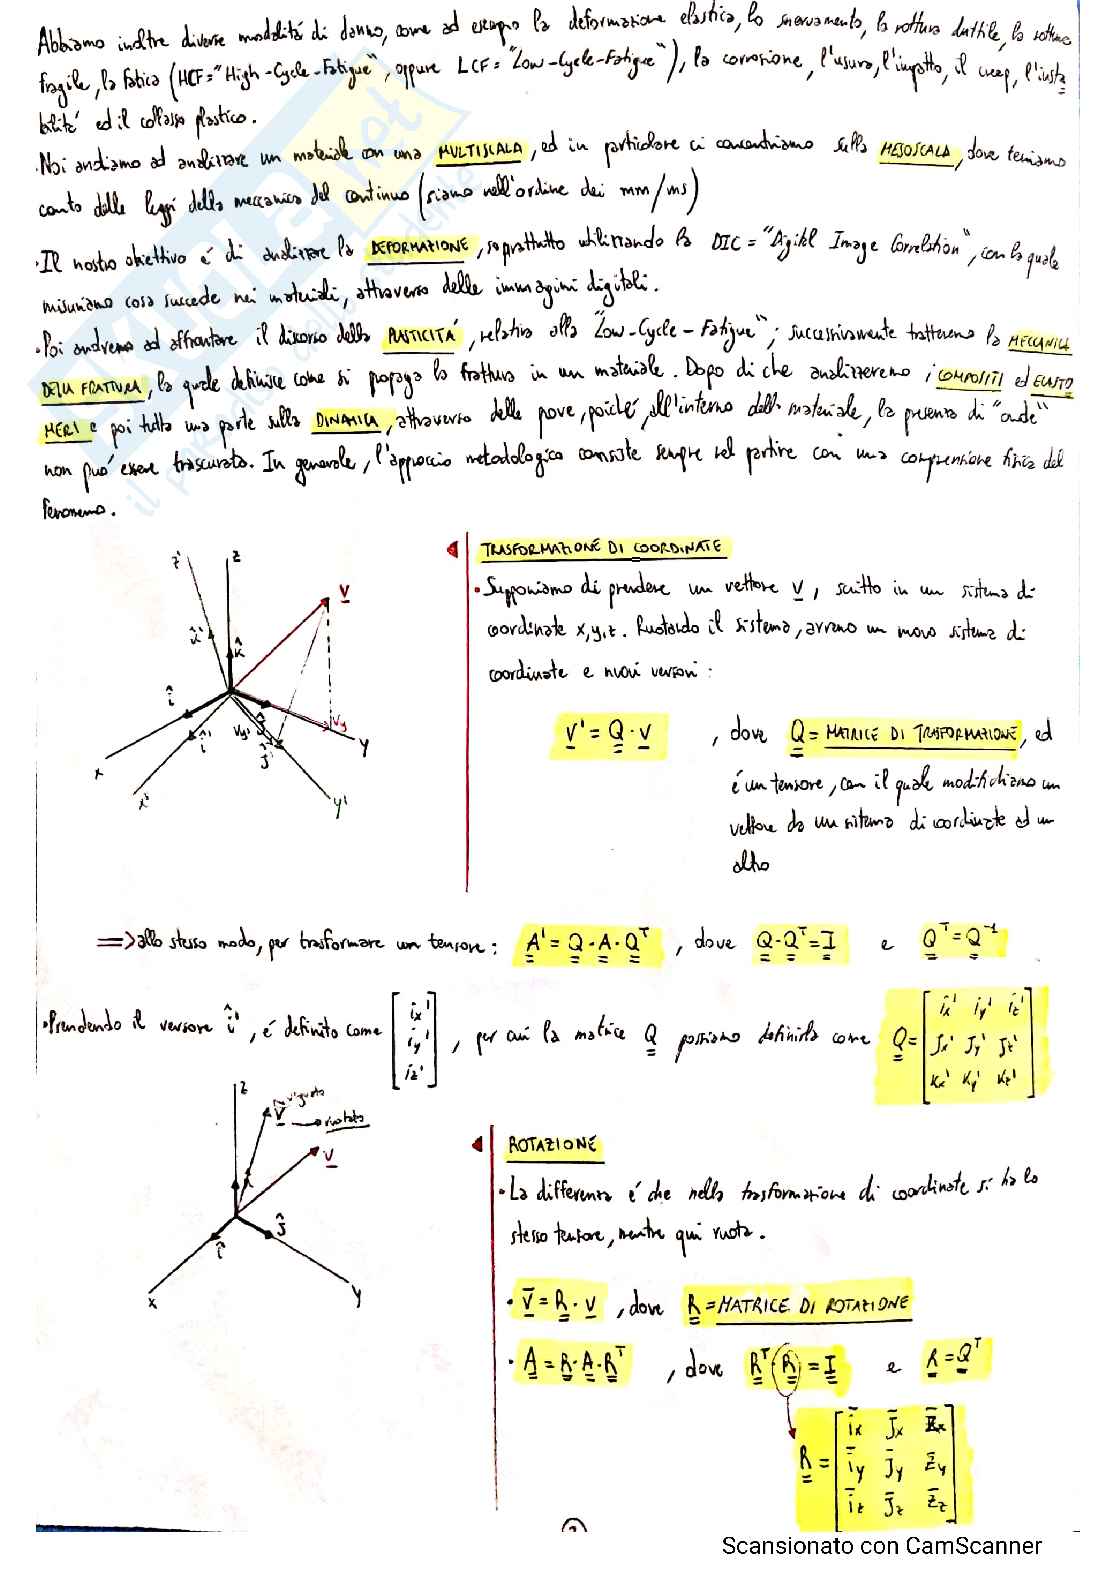 Abbiamo inoltre diverse modalitá di danno, come ad esempio la deformazione elastica, lo snervamento, la rottura duttile, la rottura
fragile, la fatica (HCF="High-Cycle-Fatigue", oppure LCF="Low-Cycle-Fatigue"), la corrosione, l'usura, l'impatto, il creep, l'insta
bilitá ed il collasso plastico.
·Noi andiamo ad analizzare un materiale con una MULTISCALA, ed in particolare ci concentriamo sulla MESOSCALA, dove teniamo
conto delle leggi della meccanica del continuo (siamo nell'ordine dei mm/ms)
·Il nostro obiettivo é di analizzare la DEFORMAZIONE, soprattutto utilizzando la DIC = "Digital Image Correlation", con la quale
misuriamo cosa succede nei materiali, attraverso delle immagini digitali.
·Poi andremo ad affrontare il discorso della PLASTICITÁ, relativa alla "Low-Cycle-Fatigue"; successivamente tratteremo la MECCANICA
DELLA FRATTURA, la quale definisce come si propaga la frattura in un materiale. Dopo di che analizzeremo i COMPOSITI ed ELASTO
MERI e poi tutta una parte sulla DINAMICA, attraverso delle prove, poiché, all'interno del materiale, la presenza di "onde"
non puó essere trascurata. In generale, l'approccio metodologico consiste sempre nel partire con una comprensione fisica del
fenomeno.
z' z V
k' k
î î' Vy' ĵ ĵ' Vy
x x' y y'
TRASFORMAZIONE DI COORDINATE
·Supponiamo di prendere un vettore V, scritto in un sistema di
coordinate x,y,z. Ruotando il sistema, avremo un nuovo sistema di
coordinate e nuovi versori:
V' = Q · V , dove Q = MATRICE DI TRASFORMAZIONE, ed
é un tensore, con il quale modifichiamo un
vettore da un sistema di coordinate ad un
altro
=> allo stesso modo, per trasformare un tensore: A' = Q · A · Qᵀ , dove Q · Qᵀ = I e Qᵀ = Q⁻¹
·Prendendo il versore î', é definito come [ix' iy' iz'] , per cui la matrice Q possiamo definirla come Q = [ix' iy' iz'
Jx' Jy' Jz'
Kx' Ky' Kz']
z
V̄ → ruotato
V
î ĵ
x y
ROTAZIONE
·La differenza é che nella trasformazione di coordinate si ha lo
stesso tensore, mentre qui ruota.
· V̄ = R · V , dove R = MATRICE DI ROTAZIONE
· A = R · A · Rᵀ , dove Rᵀ R = I e R = Qᵀ
R = [īx J̄x z̄x
īy J̄y z̄y
īz J̄z z̄z]
Scansionato con CamScanner